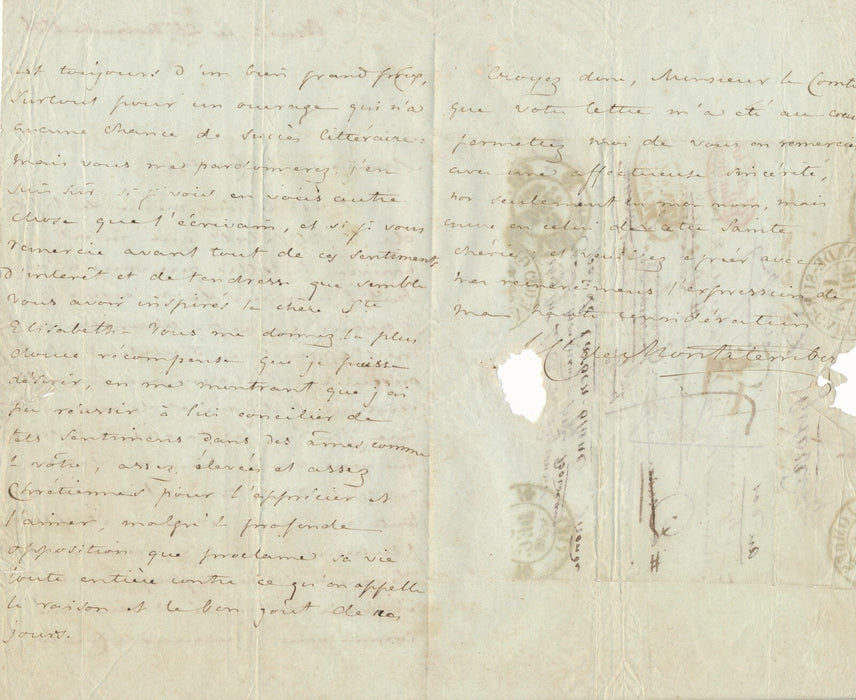 est toujours d'un bien grand prix,
surtout pour un ouvrage qui n'a
aucune chance de succès littéraire :
mais vous me pardonnerez, j'en
suis sûr, si je vois en vous autre
chose que l'écrivain, et si je vous
remercie avant tout de ces sentiments
d'intérêt et de tendresse que semble
vous avoir inspirés la chère Ste
Elisabeth - Vous me donnez la plus
douce récompense que je puisse
désirer, en me montrant que j'ai
pu réussir à lui concilier de
tels sentimens dans des âmes comme
la vôtre, assez élevées et assez
Chrétiennes pour l'apprécier et
l'aimer, malgré la profonde
opposition que proclame sa vie
toute entière contre ce qu'on appelle
la raison et le bon goût de nos
jours.
Croyez donc, Monsieur le Comte
que votre lettre m'a été au coeur
permettez moi de vous en remercier
avec une affectueuse sincérité,
non seulement en mon nom, mais
encore en celui de cette Sainte
chérie; et veuillez agréer avec
mes remercimens l'expression de
ma haute considération
Cte de Montalembert